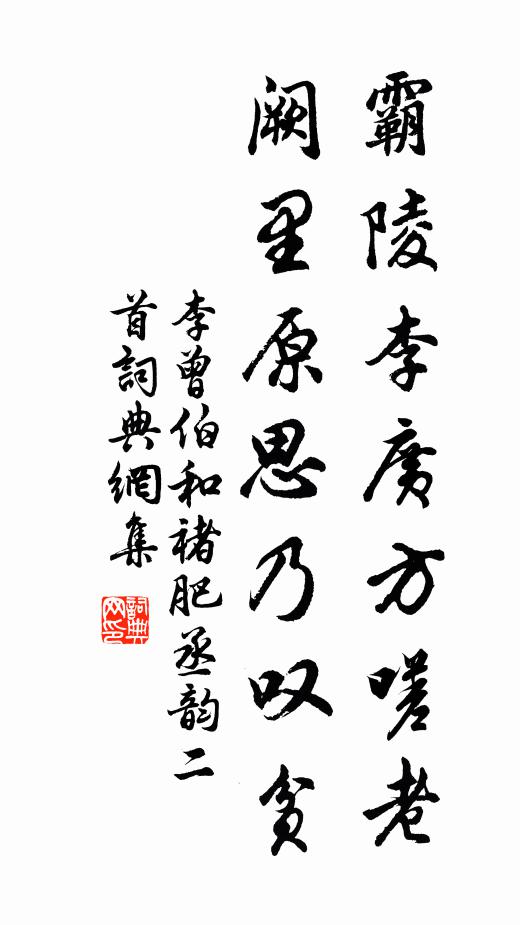 霸陵李廣方嗟老
阙里原思乃叹貧
李曾伯和褚肥丞韵二
首詞典網集
詞典网印